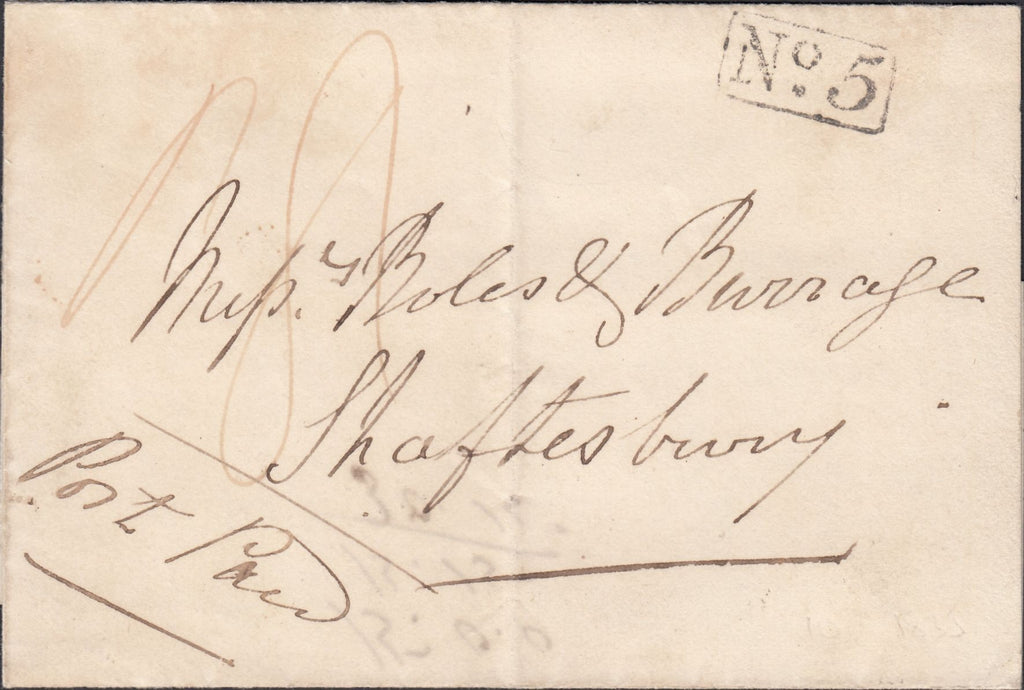 No. 5
Messrs. Boles & Burrage
Shaftesbury
Post Paid